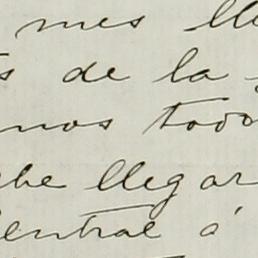 mes lle
s de la
nos todo
che llegar
entral á